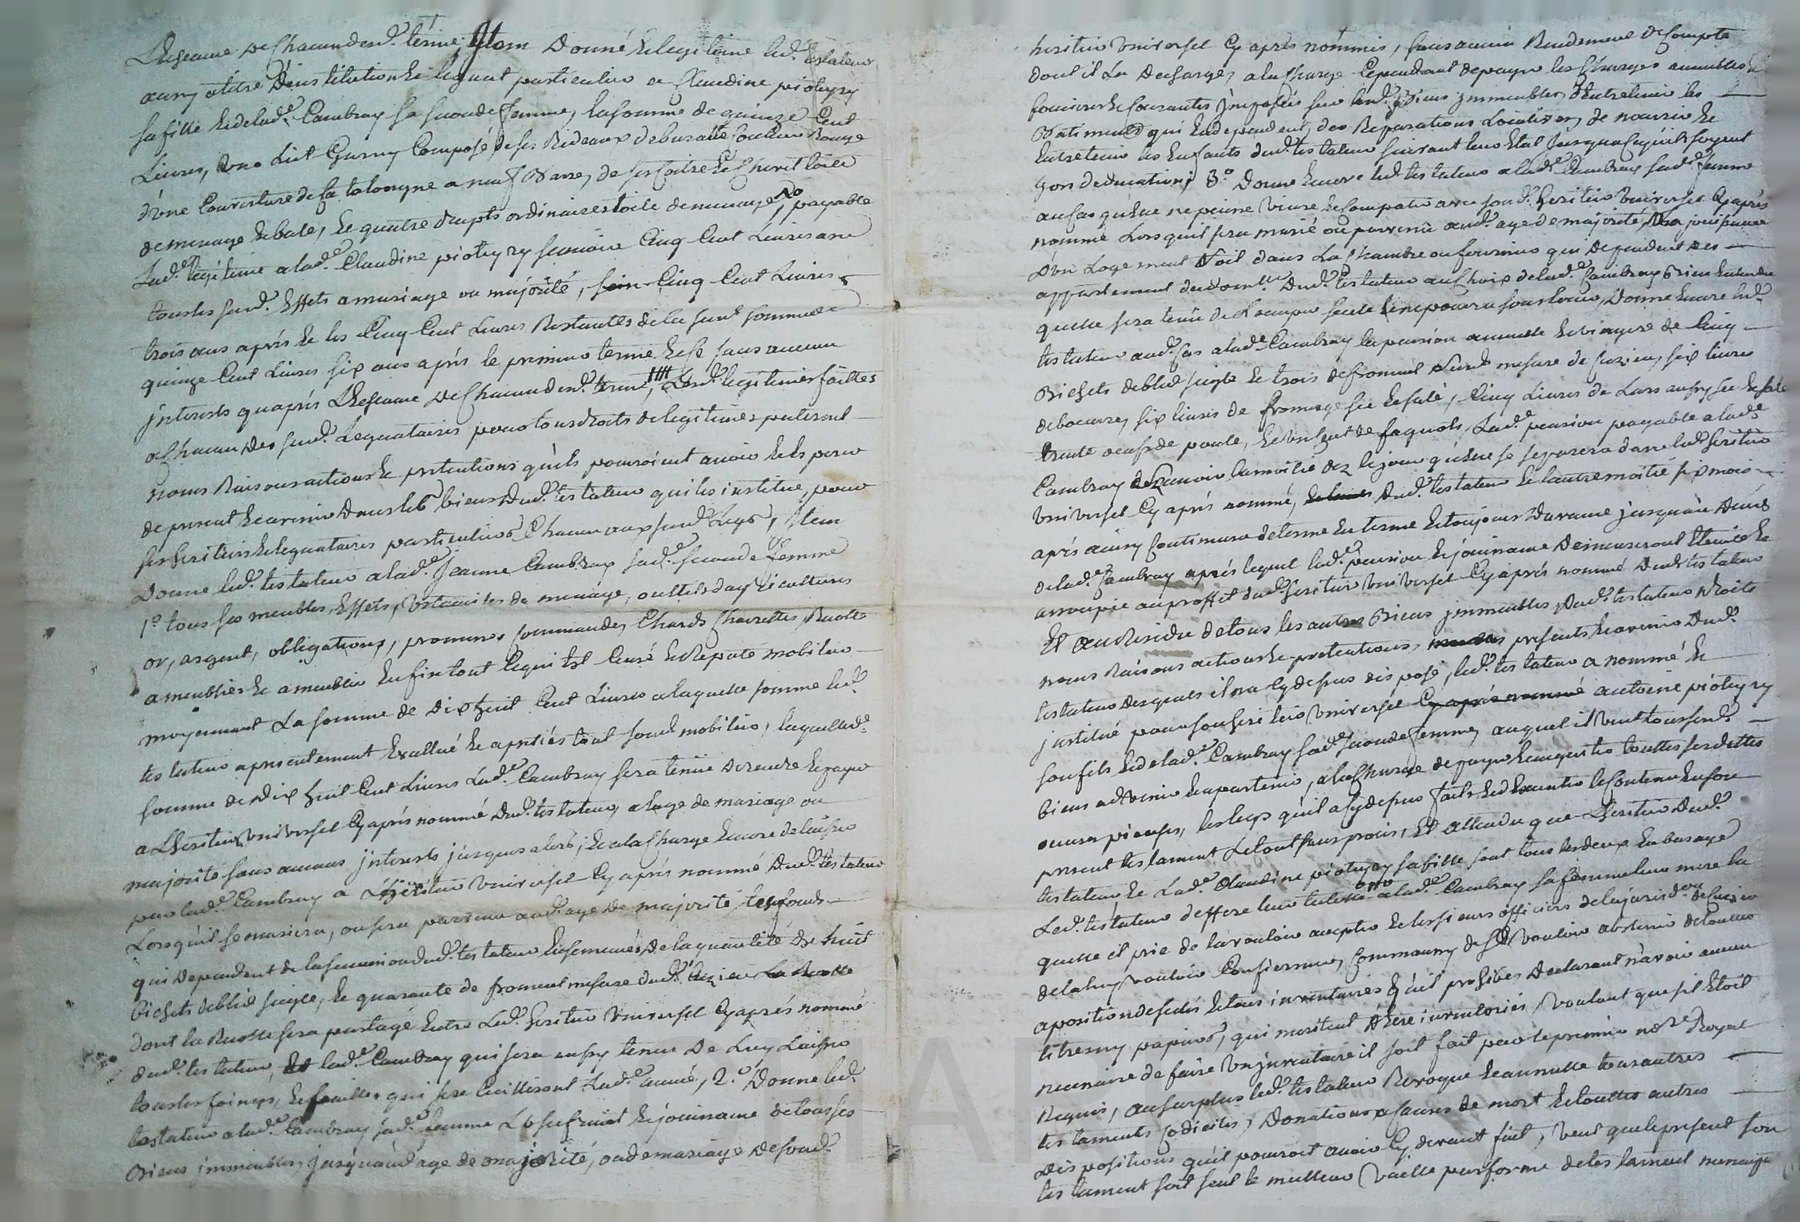 L'Escheance De Chacun desd.s termes, Item Donne & legue led.t testateur
aussy a titre D'institution & legat particulier a Claudine pioteyry
sa fille & de lad.e Cambray sa seconde femme, la somme de quinze Cent
Livres, un Lit Garny Composé de ses Rideaux de Couleur Rouge
d'une Couverture de Catalongne a neuf Barres, de
de menage & bale, & quatre draps ordinaires toile de menage, payable
Lad.e legitime a lad.e Claudine pioteyry scavoir Cinq Cent Livres avec
tous les susd.s Effets a mariage ou majorité, Cinq Cent Livres
trois ans aprés & les Cinq Cent Livres Restantes de la susd.e somme de
quinze Cent Livres six ans aprés le premier terme & ce sans aucun
jnterests qu'aprés L'Escheance De Chacun desd.s termes, Lesd.s legitimes faittes
a Chacun Des susd.s Legataires pour tous droits de legitimes paternels
noms Raisons actions & pretentions qu'ils pourroient avoir & esperer
de present & a venir Dans les biens Dud.t testateur qui les institue, pour
ses heritiers & legataires particuliers Chacun aux susd.s Legs, Item
Donne led.t testateur a lad.e Jeanne Cambray sad.e seconde femme
1.o tous ses meubles, Effets, ustenciles de menage, outtils d'agriculture
or, argent, obligations, promesses Commandes, Chards Charrettes, Recolte
ameublies & a meublir Enfin tout Ce qui Est Censé & Reputé mobilier
moyennant La somme de Dix huit Cent Livres a laquelle somme led.t
testateur a presentement Evallué & aprétié tout son mobilier, laquelle
somme de Dix huit Cent Livres Lad.e Cambray sera tenue De rendre & payer
a L'heritier universel Cy aprés nommé Dud.t testateur, a l'age de mariage ou
majorité sans aucuns jnterests jusques alors, & a la Charge Encore de laisser
par lad.e Cambray a L'heritier universel Cy aprés nommé Dud.t testateur
Lorsqu'il se mariera, ou sera parvenu aud.t age de majorité, les fonds
qui Dependent de la succession dud.t testateur Ensemencés, De la quantité De huit
bichets de bled seigle, & quarante de froment mesure dud.t
Dont la Recolte sera partagé Entre Led.t heritier universel Cy aprés nommé
dud.t testateur, & lad.e Cambray qui sera aussy tenue De Luy Laisser
tous les foings, & pailles qui se Cuilliront Lad.e année, 2.o Donne led.t
testateur a lad.e Cambray sad.e femme L'usufruit & jouissance de tous ses
Biens jmmeubles, jusqu'à l'age de majorité, ou de mariage De sond.t
heritier universel Cy aprés nommé, sans aucun Rendement De Compte
dont il La Decharge, a la Charge Cependant de payer les Charges annuelles
foncieres & Courantes jmposées sur lesd.s Biens jmmeubles, d'Entretenir les
Batiments qui En dependent, des Reparations Locatives, de nourrir &
Entretenir les Enfants dud.t testateur suivant leur Etat jusqu'a Ce qu'ils soyent
hors d'education, 3.o Donne Encore led.t testateur a lad.e Cambray sad.e femme
au Cas qu'elle ne puisse vivre & Compatir avec sond.t heritier universel Cy aprés
nommé Lors qu'il sera marié ou parvenu aud.t age de majorité, La jouissance
D'un Logement soit dans La Chambre ou fournier qui Dependent Des
appartement du dom.e Dud.t testateur au Choix de lad.e Cambray Bien Entendu
quelle sera tenue de L'occuper seule & ne pourra sous louer, Donne Encore led.t
testateur aud.t Cas a lad.e Cambray la pension annuelle & viagere de Cinq
Bichets de bled seigle & trois de froment mesure de six livres
de beurre, six livres de fromage sec & salé, Cinq Livres de Lard aussy sec & salé
trente oeufs de poule, & un Cent de fagots, Lad.e pension payable a lad.e
Cambray scavoir la moitié dez le jour qu'elle se separera d'avec led.t heritier
universel Cy aprés nommé, Dud.t testateur & l'autre moitié six mois
aprés ainsy Continuera de terme En terme & toujours D'avance jusqu'au deced
de lad.e Cambray aprés lequel lad.e pension & jouissance Demeureront Eteintes &
assoupie au proffit dud.t heritier universel Cy aprés nommé Dud.t testateur
Et au Residu de tous les autres Biens jmmeubles, Dud.t testateur Droits
noms Raisons actions & pretentions, presents & avenir Dud.t
testateur desquels il n'a Cy dessus Disposé, led.t testateur a nommé &
jnstitué pour son heritier universel antoine pioteyry
son fils & de lad.e Cambray sad.e seconde femme, auquel il veut tous sesd.s
biens advenir & apartenir, a la Charge de payer & acquitter touttes ses dettes
oeuvres pieuses, les legs qu'il a Cy dessus faits & d'Executer le Contenu En son
present testament & le tout sans procés, Et attendu que L'heritier Dud.t
testateur & Lad.e Claudine piotéyry sa fille sont tous les deux En bas age
Led.t testateur defferre leur tutelle a lad.e Cambray sa femme leur mere la
quelle il prie de la vouloir accepter & les sieurs officiers de la jurisd.on de
de la luy vouloir Confirmer, Comme aussy de se vouloir abstenir de touttes
aposition de scelés & tous inventaires qu'il prohibe Declarant n'avoir aucun
titres ny papiers, qui meritent d'Etre inventoriés, voulant que s'il Etoit
necessaire de faire un jnventaire il soit fait par le premier not.re Royal
Requis, au surplus led.t testateur Revoque & annulle tous autres
testaments Codiciles, Donations a Causes de mort & touttes autres
Dispositions qu'il pourroit avoir Cy devant fait, veut que le present son
testament soit seul & meilleur vaille par forme de testament nuncupatif